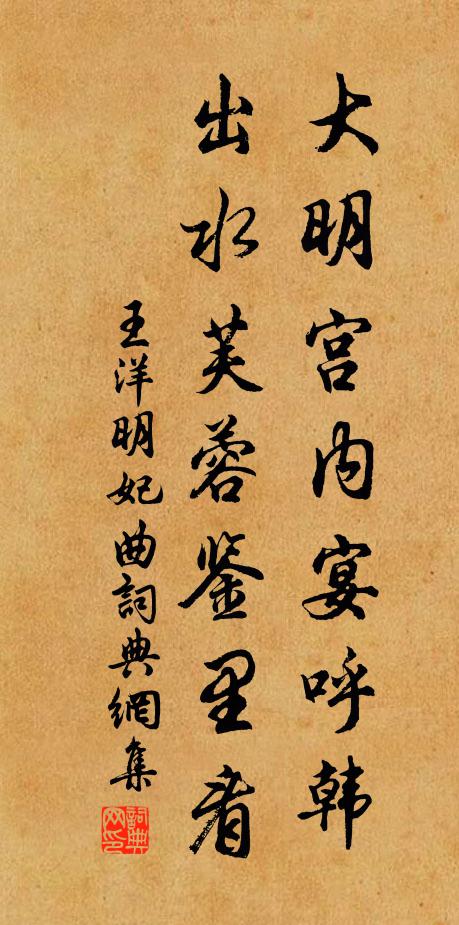 大明宫内宴呼韩
出水芙蓉鉴里看
王洋明妃曲詞典網集
詞典網印